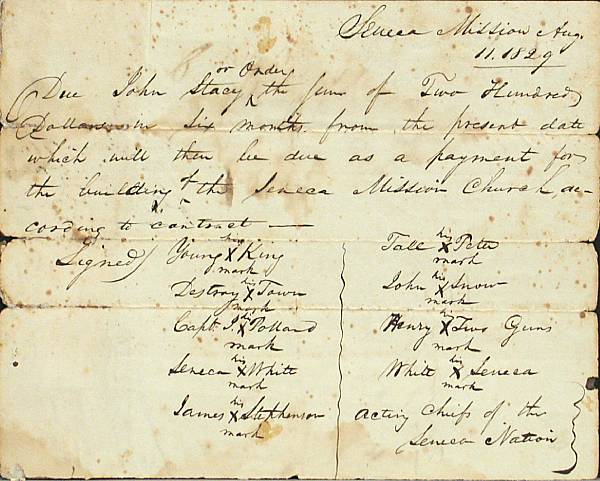 Seneca Mission Aug.
11. 1829
Due John Stacy or Order the sum of Two Hundred
Dollars in Six months from the present date
which will then be due as a payment for
the building of the Seneca Mission Church, ac-
cording to contract —
Signed
Young his X King mark
Destroy his X Town mark
Capt. P. his X Pollard mark
Seneca his X White mark
James his X Stephenson mark
Tall his X Peter mark
John his X Snow mark
Henry his X Two Guns mark
White his X Seneca mark
acting Chiefs of the
Seneca Nation